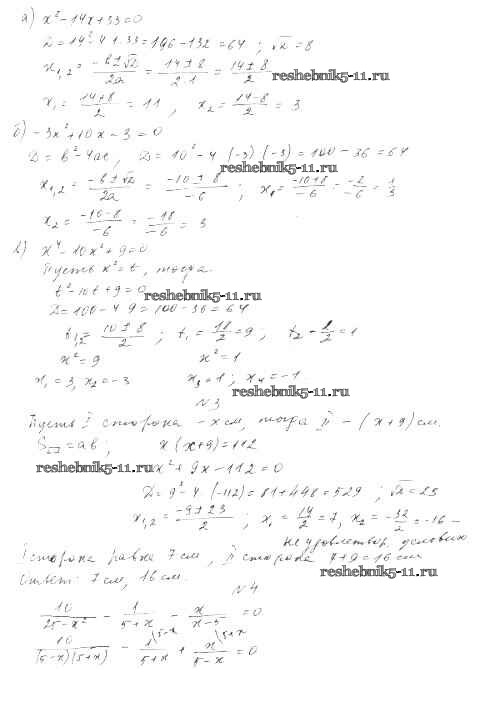 а) x²-14x+33=0
D=14²-4·1·33=196-132=64; √D=8
x₁,₂ = (-b±√D)/2a = (14±8)/(2·1) = (14±8)/2
reshebnik5-11.ru
x₁ = (14+8)/2 = 11, x₂ = (14-8)/2 = 3.
б) -3x²+10x-3=0
D=b²-4ac, D=10²-4·(-3)·(-3)=100-36=64
reshebnik5-11.ru
x₁,₂ = (-b±√D)/2a = (-10±8)/-6; x₁ = (-10+8)/-6 = -2/-6 = 1/3
x₂ = (-10-8)/-6 = -18/-6 = 3
в) x⁴-10x²+9=0
Пусть x²=t, тогда
t²-10t+9=0
reshebnik5-11.ru
D=100-4·9=100-36=64
t₁,₂ = (10±8)/2; t₁ = 18/2 = 9; t₂ = 2/2 = 1
x²=9 x²=1
x₁=3, x₂=-3 x₃=1; x₄=-1
reshebnik5-11.ru
N3
Пусть I сторона - x см, тогда II - (x+9) см.
S=ab; x(x+9)=112
reshebnik5-11.ru x²+9x-112=0
D=9²-4·(-112)=81+448=529; √D=23
x₁,₂ = (-9±23)/2; x₁ = 14/2 = 7, x₂ = -32/2 = -16 -
не удовлетвор. условию
I сторона равна 7 см, II сторона 7+9=16 см
Ответ: 7 см, 16 см.
reshebnik5-11.ru
N4
10/(25-x²) - 1/(5+x) - x/(x-5) = 0
10/((5-x)(5+x)) - 1\5-x/(5+x) + x\5+x/(5-x) = 0